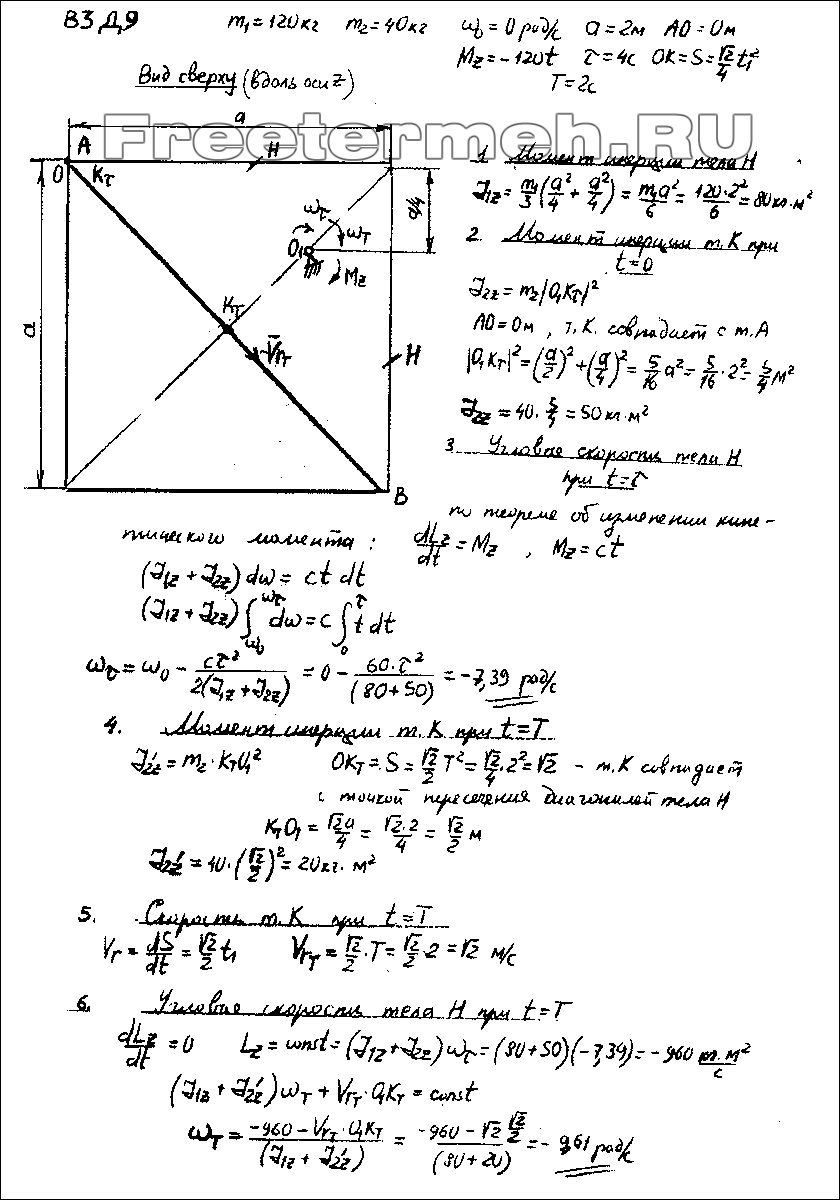 В3 Д9 m₁=120кг m₂=40кг ω₀=0 рад/с a=2м AO=0м
M_z=-120t τ=4с OK=S=√2/4 t₁²
T=2с
Вид сверху (вдоль оси z)
Freetermeh.RU
a
A
O
H
Kτ
a/4
ωτ
ωT
O₁
M_z
a
KT
V̄rT
H
B
1. Момент инерции тела H
J₁z = m₁/3 (a²/4 + a²/4) = m₁a²/6 = 120·2²/6 = 80 кг·м²
2. Момент инерции т.К при
t=0
J₂z = m₂|O₁Kτ|²
AO=0м, т.К. совпадает с т.А
|O₁Kτ|² = (a/2)² + (a/4)² = 5/16 a² = 5/16 · 2² = 5/4 м²
J₂z = 40·5/4 = 50 кг·м²
3. Угловые скорости тела H
при t=τ
по теореме об изменении кине-
тического момента: dLz/dt = Mz, Mz=ct
(J₁z + J₂z) dω = ct dt
(J₁z + J₂z) ∫_{ω₀}^{ωτ} dω = c ∫_0^τ t dt
ωτ = ω₀ - cτ²/2(J₁z+J₂z) = 0 - 60·τ²/(80+50) = -7,39 рад/с
4. Момент инерции т.К при t=T
J₂z' = m₂·KTO₁² OKT = S = √2/2 T² = √2/4·2² = √2 - т.К совпадает
с точкой пересечения диагоналей тела H
KTO₁ = √2a/4 = √2·2/4 = √2/2 м
J₂z' = 40·(√2/2)² = 20 кг·м²
5. Скорость т.К при t=T
Vr = dS/dt = √2/2 t₁ VrT = √2/2·T = √2/2·2 = √2 м/с
6. Угловые скорости тела H при t=T
dLz/dt = 0 Lz = const = (J₁z+J₂z)ωτ = (80+50)(-7,39) = -960 кг·м²/с
(J₁z + J₂z')ωT + VrT·O₁KT = const
ωT = -960 - VrT·O₁KT/(J₁z + J₂z') = -960 - √2 √2/2/(80+20) = -9,61 рад/с